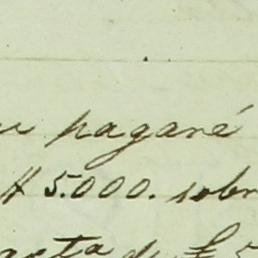 pagaré
5.000. sobr
de £ 5